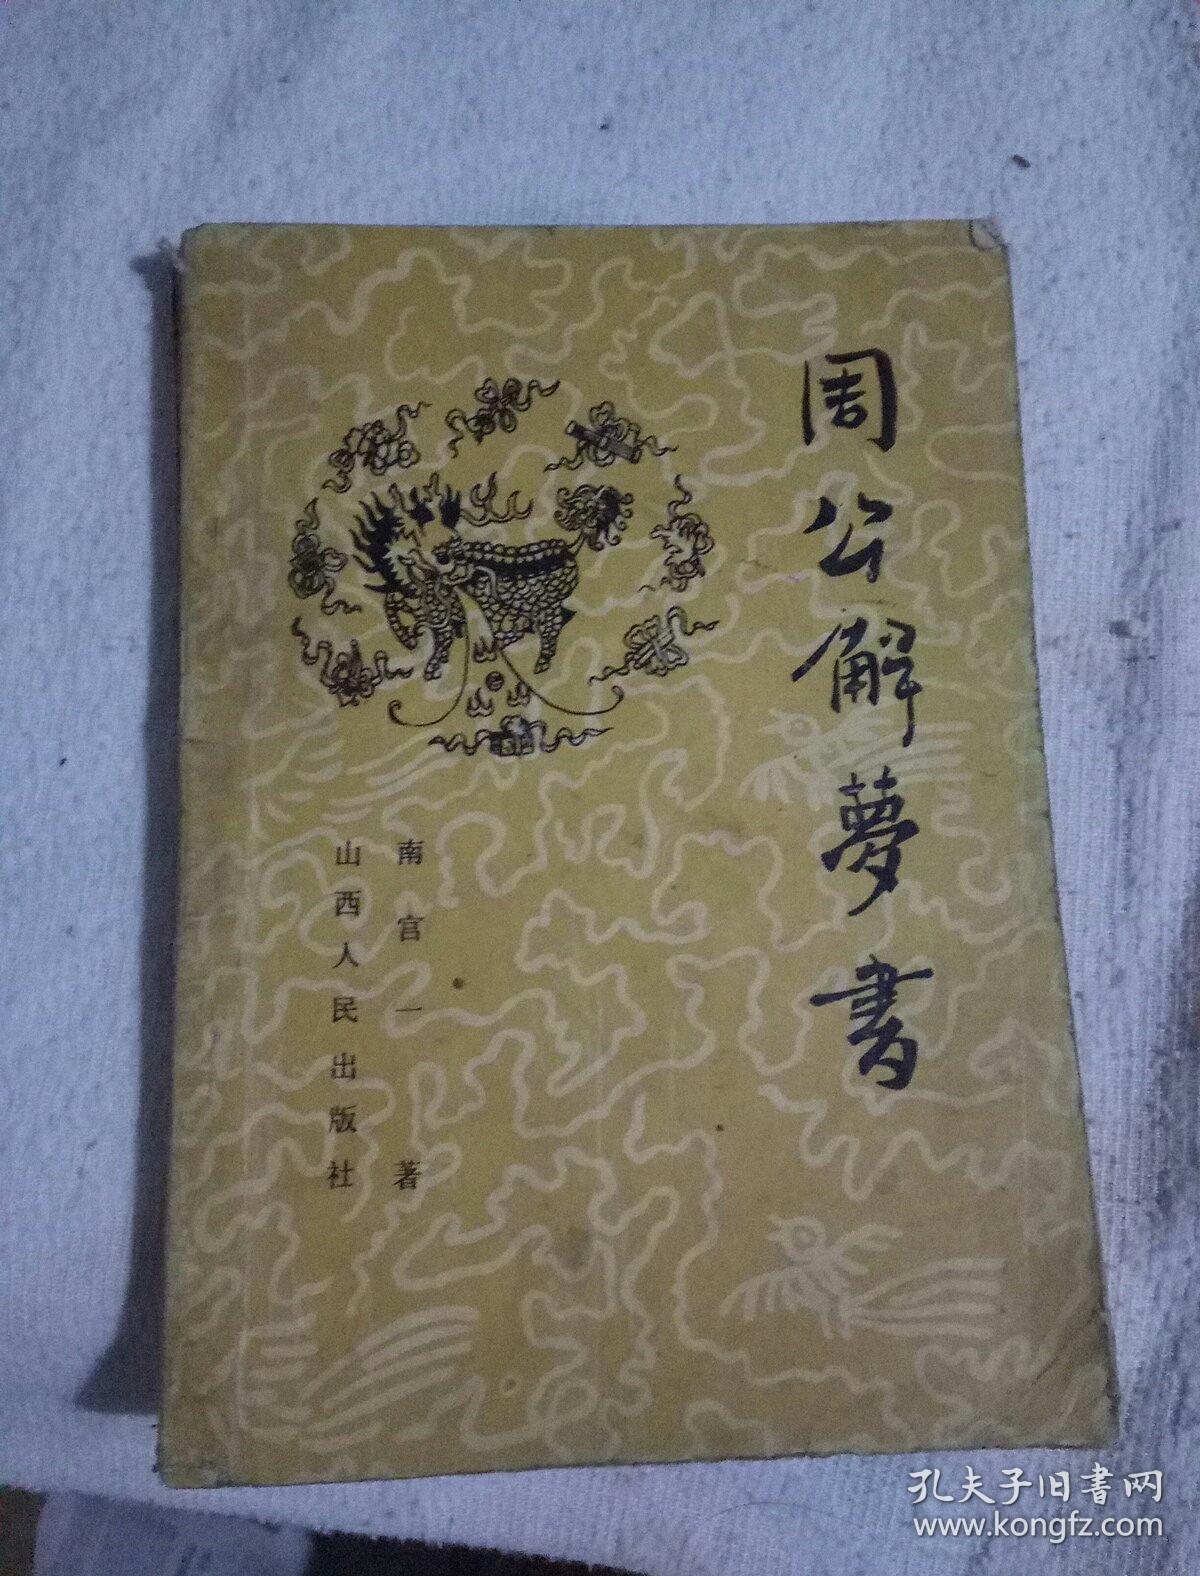 周公解夢書
南宫一 著
山西人民出版社
孔夫子旧書网
www.kongfz.com